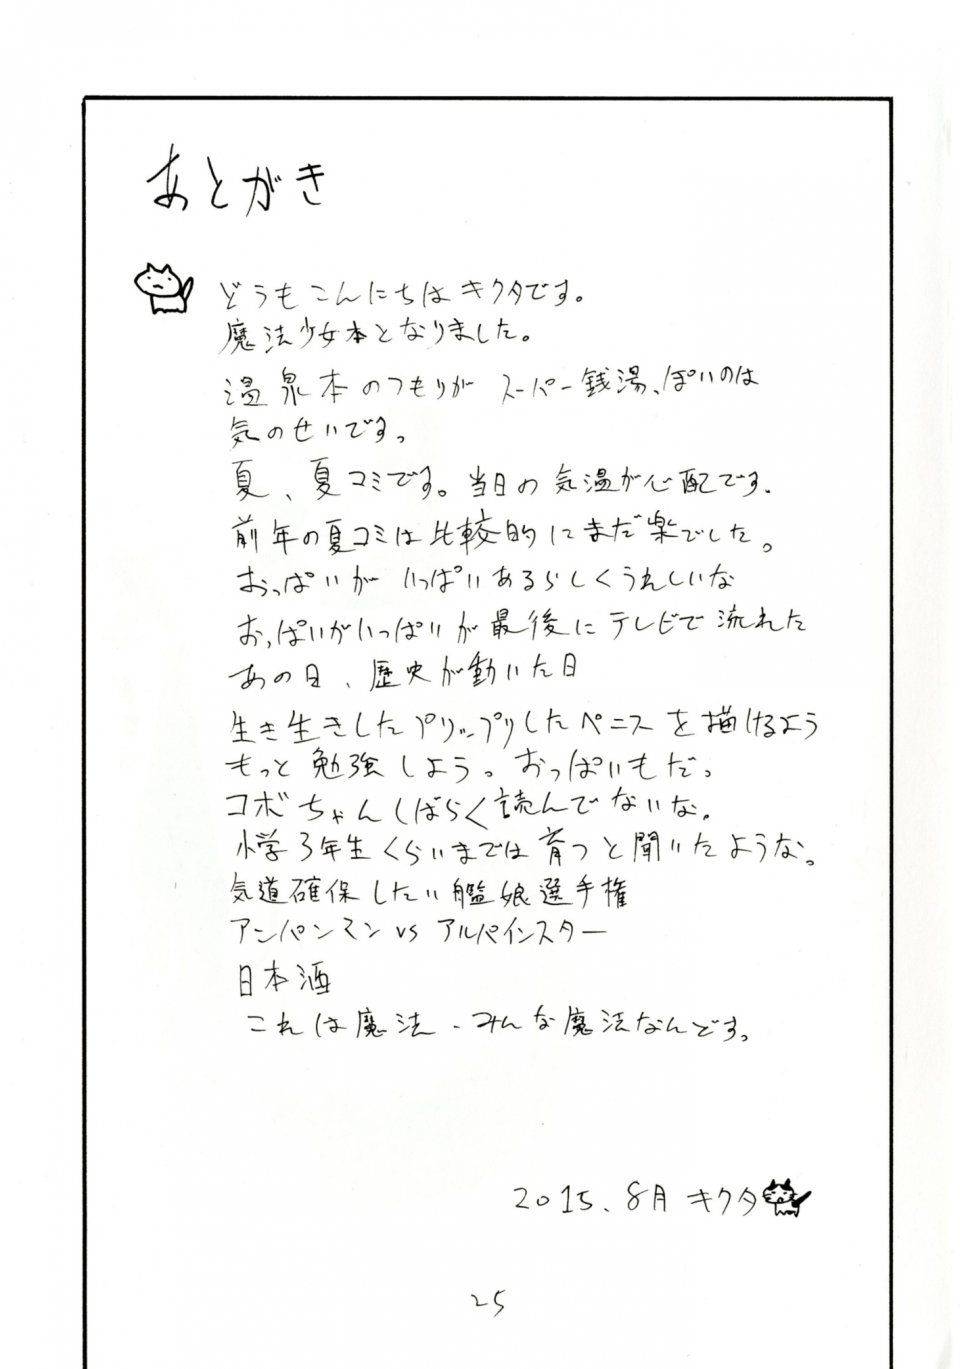 あとがき
どうもこんにちはキクタです。
魔法少女本となりました。
温泉本のつもりが スーパー銭湯っぽいのは
気のせいです。
夏、夏コミです。当日の気温が心配です.
前年の夏コミは比較的にまだ楽でした。
おっぱいが いっぱいあるらしくうれしいな
おっぱいがいっぱいが最後にテレビで流れた
あの日、歴史が動いた日
生き生きしたプリップリしたペニスを描けるよう
もっと勉強しよう。おっぱいもだ。
コボちゃんしばらく読んでないな。
小学3年生くらいまでは育つと聞いたような。
気道確保したい艦娘選手権
アンパンマン vs アルパインスター
日本酒
これは魔法、みんな魔法なんです。
2015.8月 キクタ
25